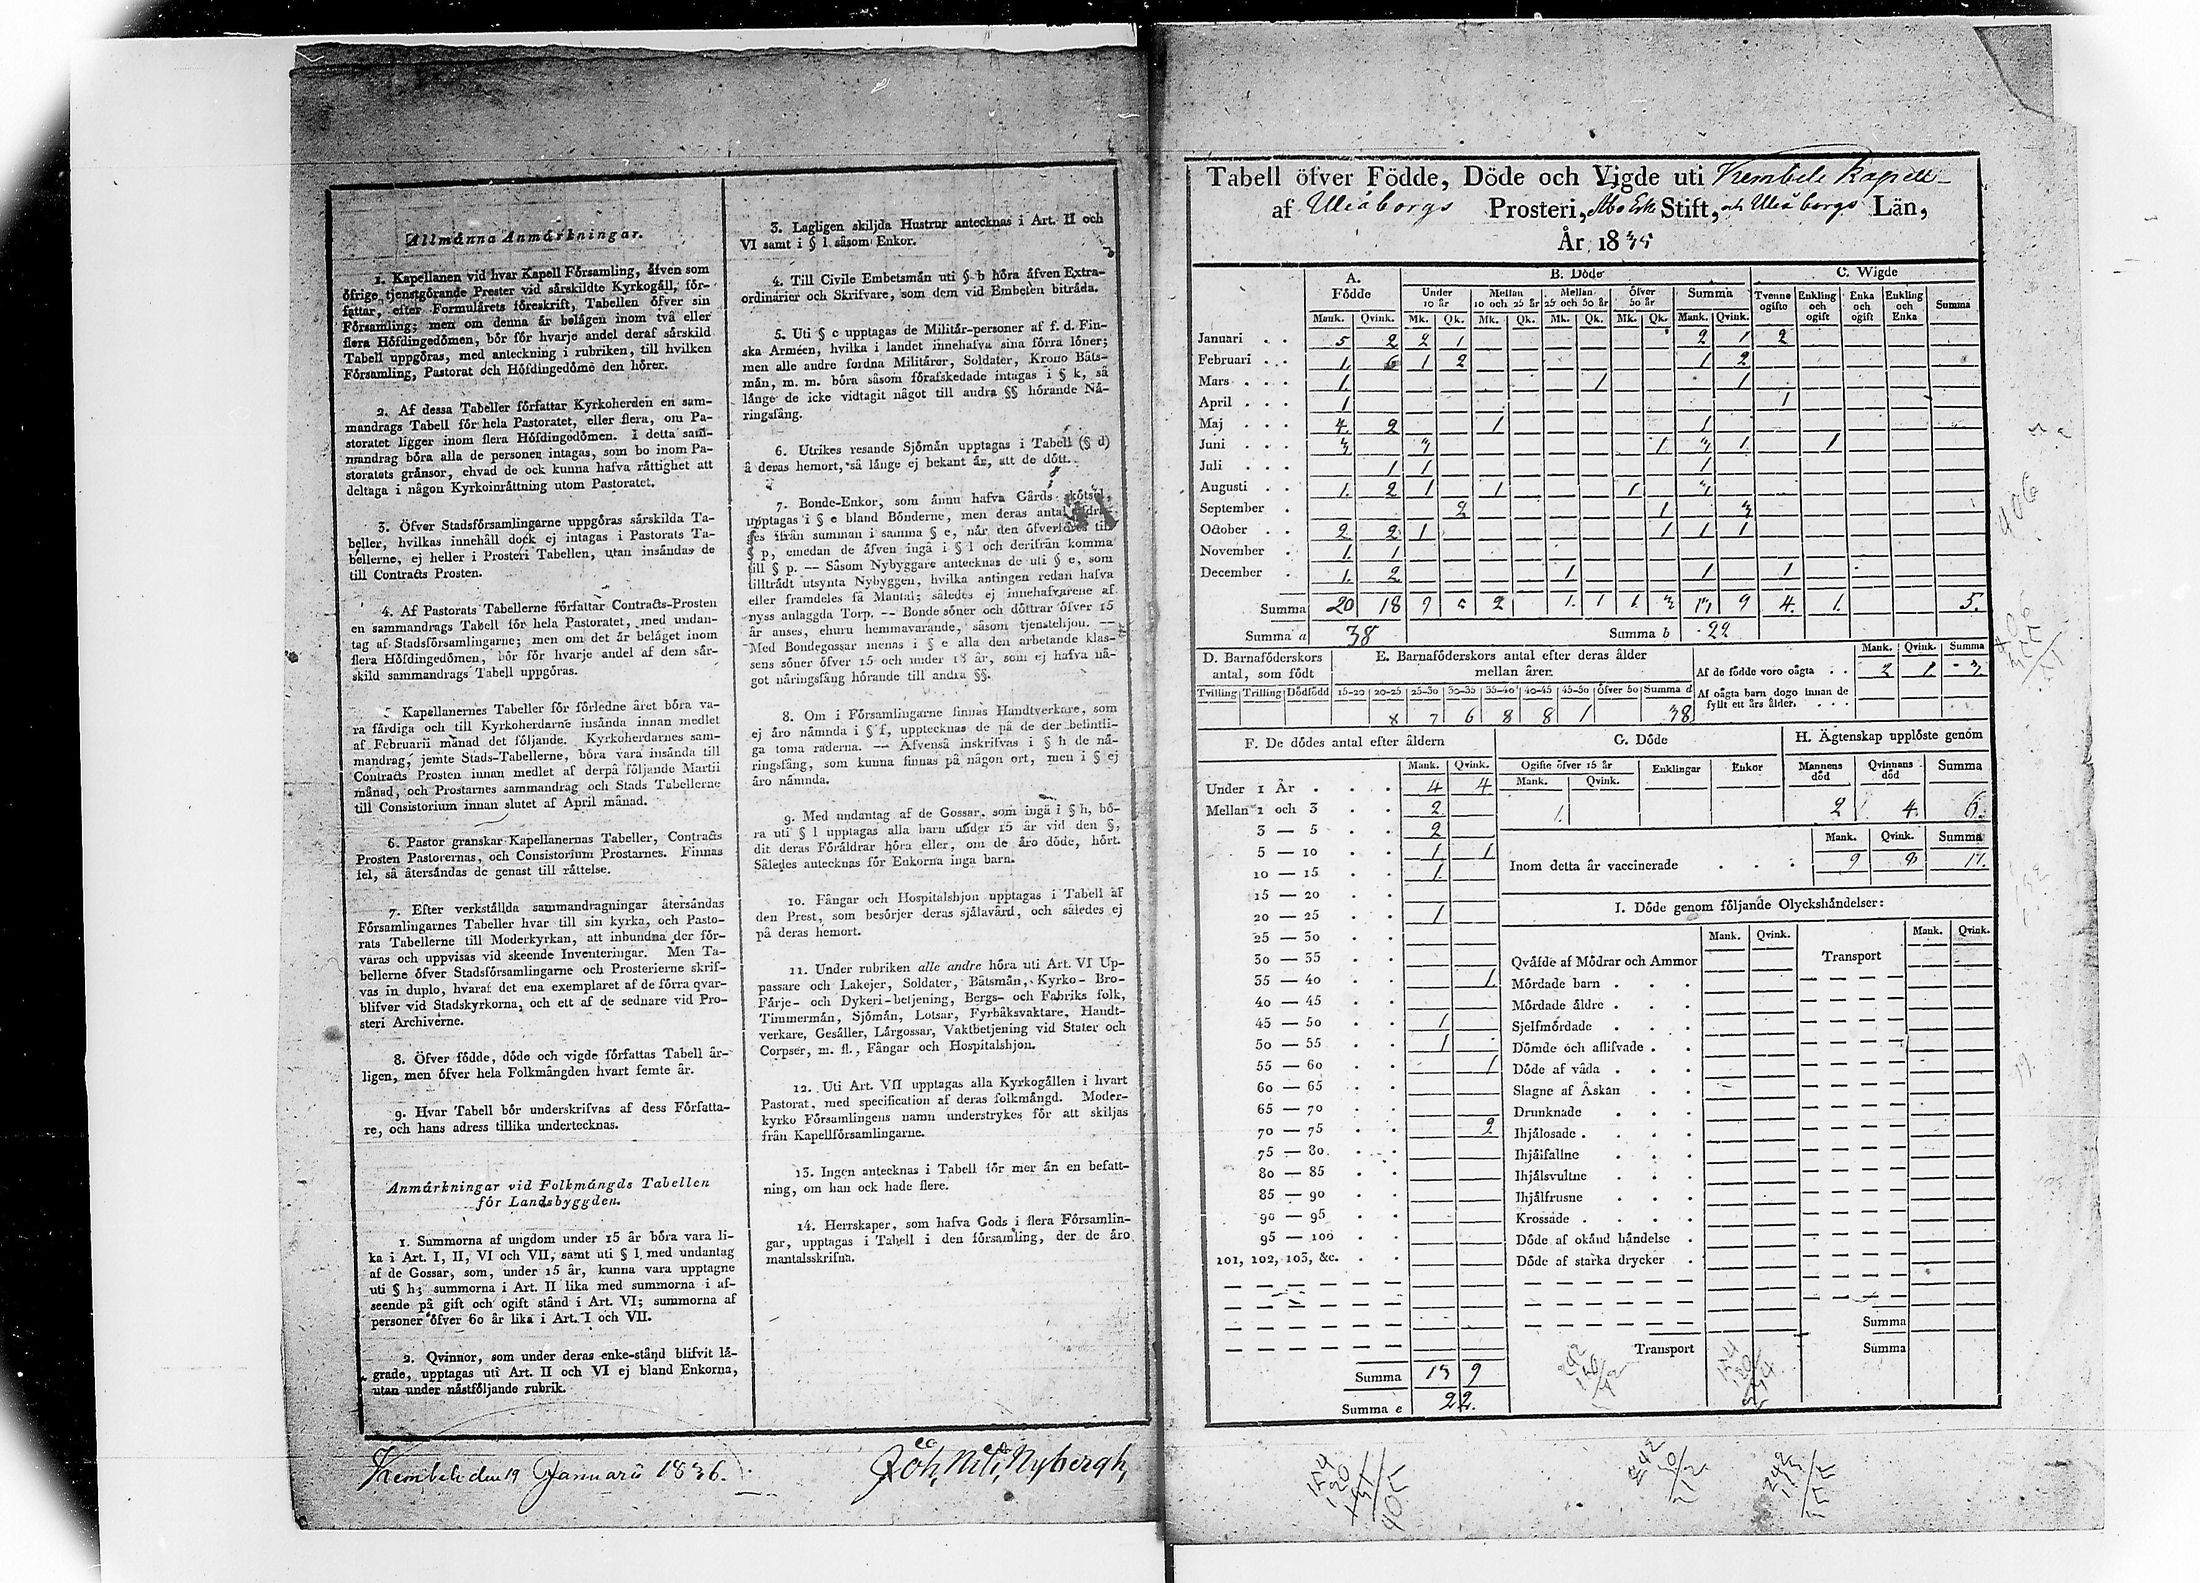 Allmänna Anmärkningar.
1. Kapellanen vid hvar Kapell Församling, äfven som
öfrige tjenstgörande Prester vid särskildte Kyrkogäll, för-
fattar, efter Formulärets föreskrift, Tabellen öfver sin
Församling; men om denna är belägen inom två eller
flera Höfdingedömen, bör för hvarje andel deraf särskild
Tabell uppgöras, med anteckning i rubriken, till hvilken
Församling, Pastorat och Höfdingedöme den hörer.
2. Af dessa Tabeller författar Kyrkoherden en sam-
mandrags Tabell för hela Pastoratet, eller flera, om Pa-
storatet ligger inom flera Höfdingedömen. I detta sam-
mandrag böra alla de personer intagas, som bo inom Pa-
storatets gränsor, ehvad de ock kunna hafva rättighet att
deltaga i någon Kyrkoinrättning utom Pastoratet.
3. Öfver Stadsförsamlingarne uppgöras särskilda Ta-
beller, hvilkas innehåll dock ej intagas i Pastorats Ta-
bellerne, ej heller i Prosteri Tabellen, utan insändas de
till Contracts Prosten.
4. Af Pastorats Tabellerne författar Contracts-Prosten
en sammandrags Tabell för hela Pastoratet, med undan-
tag af Stadsförsamlingarne; men om det är beläget inom
flera Höfdingedömen, bör för hvarje andel af dem sär-
skild sammandrags Tabell uppgöras.
5. Kapellanernes Tabeller för förledne året böra va-
ra färdiga och till Kyrkoherdarne insända innan medlet
af Februarii månad det följande. Kyrkoherdarnes sam-
mandrag, jemte Stads-Tabellerne, böra vara insända till
Contracts Prosten innan medlet af derpå följande Martii
månad, och Prostarnes sammandrag och Stads Tabellerne
till Consistorium innan slutet af April månad.
6. Pastor granskar Kapellanernas Tabeller, Contracts
Prosten Pastorernas, och Consistorium Prostarnes. Finnas
fel, så återsändas de genast till rättelse.
7. Efter verkställda sammandragningar återsändas
Församlingarnes Tabeller hvar till sin kyrka, och Pasto-
rats Tabellerne till Moderkyrkan, att inbundna der för-
varas och uppvisas vid skeende Inventeringar. Men Ta-
bellerne öfver Stadsförsamlingarne och Prosterierne skrif-
vas in duplo, hvaraf det ena exemplaret af de förra qvar-
blifver vid Stadskyrkorna, och ett af de sednare vid Pro-
steri Archiverne.
8. Öfver födde, döde och vigde författas Tabell år-
ligen, men öfver hela Folkmängden hvart femte år.
9. Hvar Tabell bör underskrifvas af dess Författa-
re, och hans adress tillika undertecknas.
Anmärkningar vid Folkmängds Tabellen
för Landsbyggden.
1. Summorna af ungdom under 15 år böra vara li-
ka i Art. I, II, VI och VII, samt uti § l med undantag
af de Gossar, som, under 15 år, kunna vara upptagne
uti § h; summorna i Art. II lika med summorna i af-
seende på gift och ogift stånd i Art. VI; summorna af
personer öfver 60 år lika i Art. I och VII.
2. Qvinnor, som under deras enke-stånd blifvit lä-
grade, upptagas uti Art. II och VI ej bland Enkorna,
utan under nästföljande rubrik.
3. Lagligen skiljda Hustrur antecknas i Art. II och
VI samt i § l såsom Enkor.
4. Till Civile Embetsmän uti § b höra äfven Extra-
ordinarier och Skrifvare, som dem vid Embeten biträda.
5. Uti § c upptagas de Militär-personer af f. d. Fin-
ska Arméen, hvilka i landet innehafva sina förra löner;
men alle andre fordna Militärer, Soldater, Krono Båts-
män, m. m. böra såsom förafskedade intagas i § k, så
länge de icke vidtagit något till andra §§ hörande Nä-
ringsfång.
6. Utrikes resande Sjömän upptagas i Tabell (§ d)
å deras hemort, så länge ej bekant är, att de dött.
7. Bonde-Enkor, som ännu hafva Gårds skötsel,
upptagas i § e bland Bönderne, men deras antal
ifrån summan i samma § e, når den öfverföres till
§ p, emedan de äfven ingå i § l och derifrån komma
till § p. — Såsom Nybyggare antecknas de uti § e, som
tillträdt utsynta Nybyggen, hvilka antingen redan hafva
eller framdeles få Mantal; således ej innehafvarene af
nyss anlaggda Torp. — Bonde söner och döttrar öfver 15
år anses, ehuru hemmavarande, såsom tjenstehjon. —
Med Bondegossar menas i § e alla den arbetande klas-
sens söner öfver 15 och under 18 år, som ej hafva nå-
got näringsfång hörande till andra §§.
8. Om i Församlingarne finnas Handtverkare, som
ej äro nämnda i § f, upptecknas de på de der befintli-
ga toma raderna. — Äfvenså inskrifvas i § h de nä-
ringsfång, som kunna finnas på någon ort, men i § ej
äro nämnda.
9. Med undantag af de Gossar, som ingå i § h, bö-
ra uti § l upptagas alla barn under 15 år vid den §,
dit deras Föräldrar höra eller, om de äro döde, hört.
Således antecknas för Enkorna inga barn.
10. Fångar och Hospitalshjon upptagas i Tabell af
den Prest, som besörjer deras själavård, och således ej
på deras hemort.
11. Under rubriken alle andre höra uti Art. VI Up-
passare och Lakejer, Soldater, Båtsmän, Kyrko- Bro-
Färje- och Dykeri-betjening, Bergs- och Fabriks folk,
Timmermän, Sjömän, Lotsar, Fyrbåksvaktare, Handt-
verkare, Gesäller, Lärgossar, Vaktbetjening vid Stater och
Corpser, m. fl., Fångar och Hospitalshjon.
12. Uti Art. VII upptagas alla Kyrkogällen i hvart
Pastorat, med specification af deras folkmängd. Moder-
kyrko Församlingens namn understrykes för att skiljas
från Kapellförsamlingarne.
13. Ingen antecknas i Tabell för mer än en befatt-
ning, om han ock hade flere.
14. Herrskaper, som hafva Gods i flera Församlin-
gar, upptagas i Tabell i den församling, der de äro
mantalsskrifna.
Kembele den 19 Januarii 1836.
Joh. Nils. Nybergh,
Tabell öfver Födde, Döde och Vigde uti Kembele Kapell
af Uleåborgs Prosteri, Åbo Erke Stift, och Uleåborgs Län,
År 1835
A. Födde B. Döde C. Wigde
Under 10 år Mellan 10 och 25 år Mellan 25 och 50 år Öfver 50 år Summa Tvenne ogifte Enkling och ogift Enka och ogift Enkling och Enka Summa
Mank. Qvink. Mk. Qk. Mk. Qk. Mk. Qk. Mk. Qk. Mank. Qvink.
Januari 5 2 2 1 2 1 2
Februari 1. 6 1 2 1 2
Mars 1. 1 1
April 1 1
Maj 4. 2 1 1
Juni 3 3 1 3 1 1
Juli 1 1 1
Augusti 1. 2 1 1 1 3
September 2 1 3
October 2 2 1 1 1 1
November 1. 1
December 1. 2 1 1 1
Summa 20 18 9 5 2 1. 1 1. 3 13 9 4. 1. 5.
Summa a 38 Summa b 22
D. Barnaföderskors antal, som födt
Trilling Trilling Dödfödd
E. Barnaföderskors antal efter deras ålder mellan åren
15-20 20-25 25-30 30-35 35-40 40-45 45-50 Öfver 50 Summa d
8 7 6 8 8 1 38
Mank. Qvink. Summa
Af de födde voro oägta 2 1 3.
Af oägta barn dogo innan de
fyllt ett års ålder.
F. De dödes antal efter åldern
Mank. Qvink.
Under 1 År 4 4
Mellan 1 och 3 2
3 — 5 2
5 — 10 1 1
10 — 15 1.
15 — 20
20 — 25 1
25 — 30
30 — 35
35 — 40 1
40 — 45
45 — 50 1
50 — 55 1
55 — 60 1
60 — 65
65 — 70
70 — 75 2
75 — 80
80 — 85
85 — 90
90 — 95
95 — 100
101, 102, 103, &c.
Summa 13 9
Summa e 22.
G. Döde
Ogifte öfver 15 år Enklingar Enkor
Mank. Qvink.
1.
H. Ägtenskap upplöste genom
Mannens död Qvinnans död Summa
2 4. 6.
Mank. Qvink. Summa
Inom detta år vaccinerade 9 8 17.
I. Döde genom följande Olyckshändelser:
Mank. Qvink. Mank. Qvink.
Qväfde af Mödrar och Ammor Transport
Mördade barn
Mördade äldre
Sjelfmördade
Dömde och aflifvade
Döde af våda
Slagne af Åskan
Drunknade
Ihjälosade
Ihjälfallne
Ihjälsvultne
Ihjälfrusne
Krossade
Döde af okänd händelse
Döde af starka drycker
Summa
Transport Summa